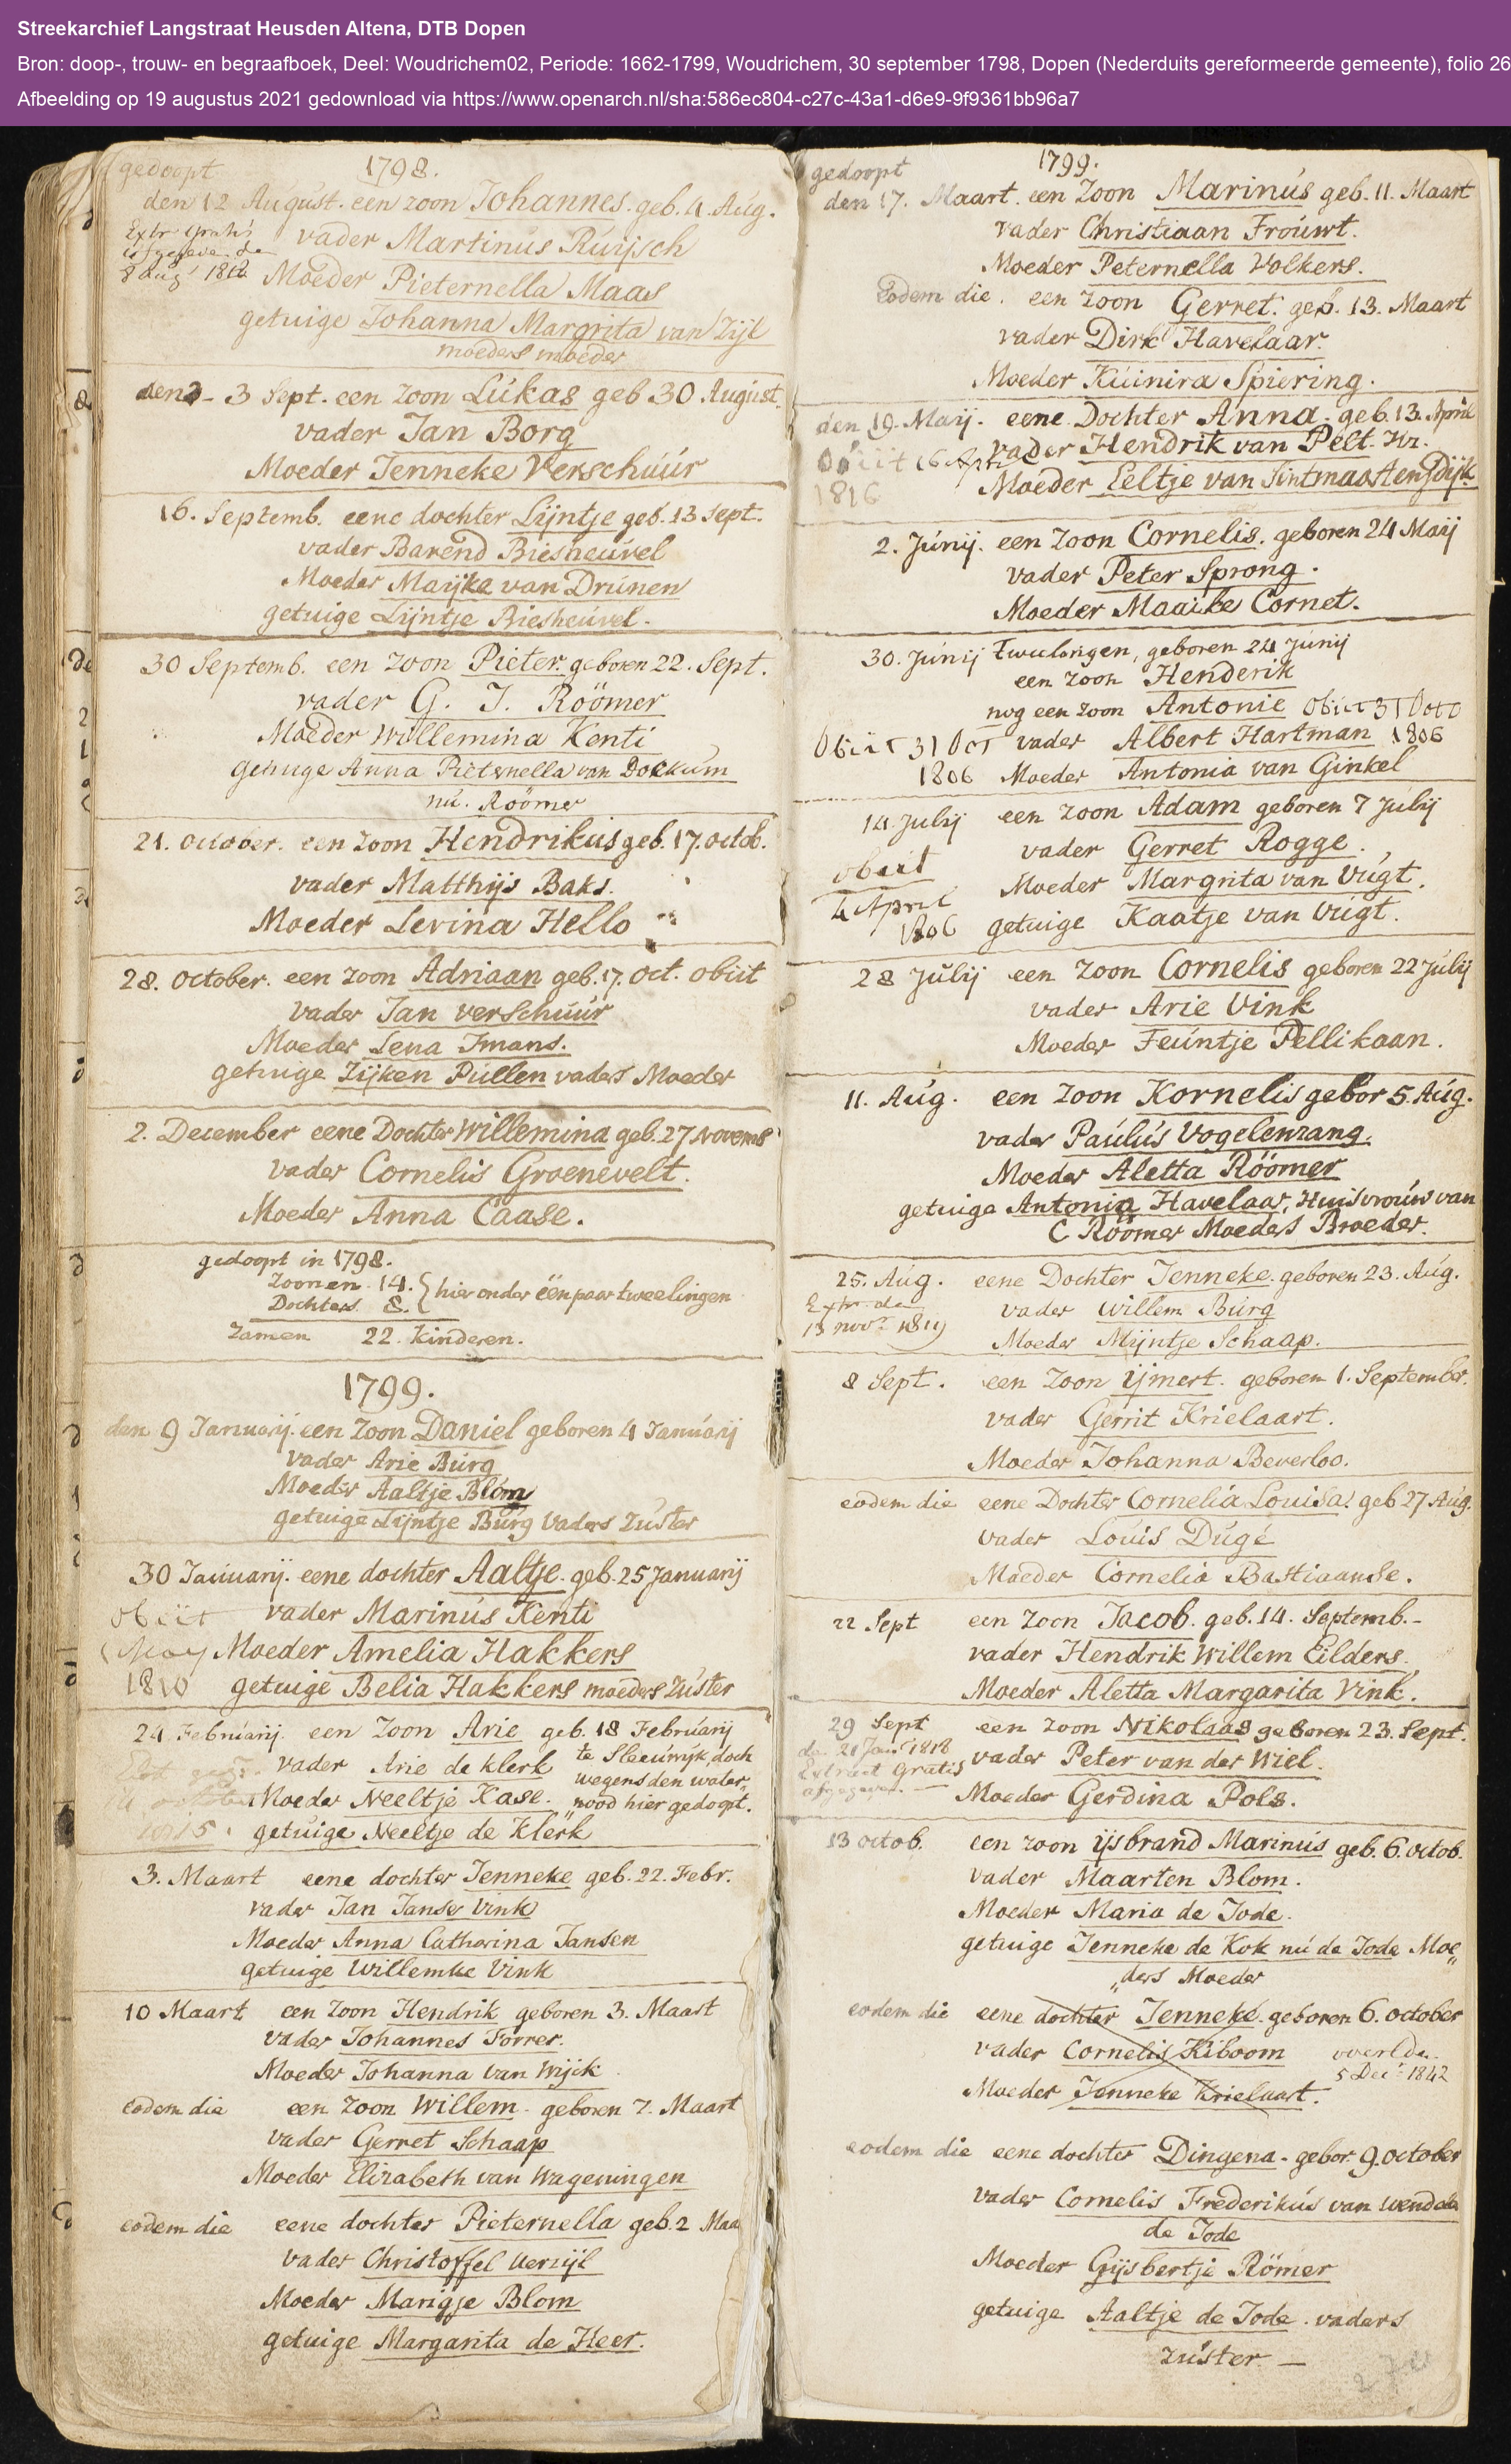 Streekarchief Langstraat Heusden Altena, DTB Dopen
Bron: doop-, trouw- en begraafboek, Deel: Woudrichem02, Periode: 1662-1799, Woudrichem, 30 september 1798, Dopen (Nederduits gereformeerde gemeente), folio 26
Afbeelding op 19 augustus 2021 gedownload via https://www.openarch.nl/sha:586ec804-c27c-43a1-d6e9-9f9361bb96a7
gedoopt 1798.
den 12 August. een zoon Johannes. geb. 4. Aug.
Extr gratis
vader Martinus Ruijsch
8 aug 1812
Moeder Pieternella Maas
getuige Johanna Margrita van Zijl
moeders moeder
den 3 Sept. een zoon Lukas geb 30 August.
vader Jan Borg
Moeder Jenneke Verschuur
16. Septemb. eene dochter Lijntje geb. 13 Sept.
vader Barend Biesheuvel
Moeder Maijke van Drunen
getuige Lijntje Biesheuvel.
30 Septemb. een zoon Pieter. geboren 22. Sept.
vader G. J. Röömer
Moeder Willemina Kenti
getuige Anna Pieternella van Dockum
nu. Röömer
21. October. een zoon Hendrikus geb. 17. octob.
vader Matthijs Baks.
Moeder Levina Hello
28. October. een zoon Adriaan geb. 17. Oct. obiit
vader Jan verschuur
Moeder Lena Imans.
getuige Zijken Pullen vaders Moeder
2. December eene Dochter Willemina geb. 27 Novemb
vader Cornelis Groenevelt.
Moeder Anna Caase.
gedoopt in 1798.
Zoonen 14. } hier onder ëen paar tweelingen
Dochters 8.
Zamen 22. Kinderen.
1799.
den 9 Januarij. een Zoon Daniel geboren 4 Januarij
vader Arie Burg
Moeder Aaltje Blom
getuige Lijntje Burg vaders Zuster
30 Januarij. eene dochter Aaltje. geb. 25 Januarij
obiit vader Marinus Kenti
May Moeder Amelia Hakkers
1810 getuige Belia Hakkers moeders Zuster
24 Februarij. een Zoon Arie geb. 18 Februarij
vader Arie de Klerk te Sleeuwijk, doch
wegens den water-
Moeder Neeltje Kase. nood hier gedoopt.
getuige Neeltje de Klerk
3. Maart eene dochter Jenneke geb. 22. Febr.
vader Jan Janse Vink
Moeder Anna Catharina Jansen
getuige Willemke Vink
10 Maart een Zoon Hendrik geboren 3. Maart
vader Johannes Forrer.
Moeder Johanna van Wijck
eodem die een Zoon Willem. geboren 7. Maart
vader Gerret Schaap
Moeder Elizabeth van Wageningen
eodem die eene dochter Pieternella geb. 2 Maa
vader Christoffel Verzijl
Moeder Marigje Blom
getuige Margarita de Heer.
gedoopt 1799.
den 17. Maart. een Zoon Marinus geb. 11. Maart
vader Christiaan Frouwt.
Moeder Peternella Volkers.
Eodem die. een zoon Gerret. geb. 13. Maart
vader Dirk Havelaar.
Moeder Kuinira Spiering.
den 19. Maij. eene Dochter Anna. geb. 13. April
vader Hendrik van Pelt. Hz.
Obiit 16 Apr
1816
Moeder Eeltje van Sintmaartensdijk
2. Junij. een Zoon Cornelis. geboren 24 Maij
vader Peter Sprong.
Moeder Maaike Cornet.
30. Junij Tweelingen, geboren 24 Junij
een zoon Henderik
nog een zoon Antonie Obiit 31 Octo
Obiit 31 Oct vader Albert Hartman 1806
1806 Moeder Antonia van Ginkel
14. Julij een zoon Adam geboren 7 Julij
vader Gerret Rogge.
obiit
Moeder Margrita van Vugt.
4 April
1806 getuige Kaatje van Vugt.
28 Julij een zoon Cornelis geboren 22 Julij
vader Arie Vink
Moeder Feuntje Pellikaan.
11. Aug. een Zoon Kornelis gebor 5. Aug.
vader Paulus Vogelenzang.
Moeder Aletta Röömer
getuige Antonia Havelaar, Huisvrouw van
C Röömer Moeders Broeder.
25. Aug. eene Dochter Jenneke. geboren 23. Aug.
vader Willem Burg
13 novr 1819
Moeder Mijntje Schaap.
8 Sept. een Zoon ijmert. geboren 1. September.
vader Gerrit Krielaart.
Moeder Johanna Beverloo.
eodem die eene Dochter Cornelia Louisa. geb 27 Aug.
vader Louis Dugé
Moeder Cornelia Bastiaanse.
22 Sept een Zoon Jacob. geb. 14. Septemb.-
vader Hendrik Willem Eilders.
Moeder Aletta Margarita Vink.
29 Sept een zoon Nikolaas geboren 23. Sept.
de 21 Jan 1818
vader Peter van der Wiel.
Extract Gratis
afgegeven.
Moeder Gerdina Pols.
13 octob. een zoon ijsbrand Marinus geb. 6. octob.
vader Maarten Blom.
Moeder Maria de Jode.
getuige Jenneke de Kok nu de Jode Moe„
„ders Moeder
eodem die eene dochter Jenneke. geboren 6. october
vader Cornelis Kiboom overlde.
5 Dec. 1842
Moeder Jenneke Krielaart.
eodem die eene dochter Dingena. gebor. 9. october
vader Cornelis Frederikus van Wendela
de Jode
Moeder Gijsbertje Römer
getuige Aaltje de Jode. vaders
zuster —